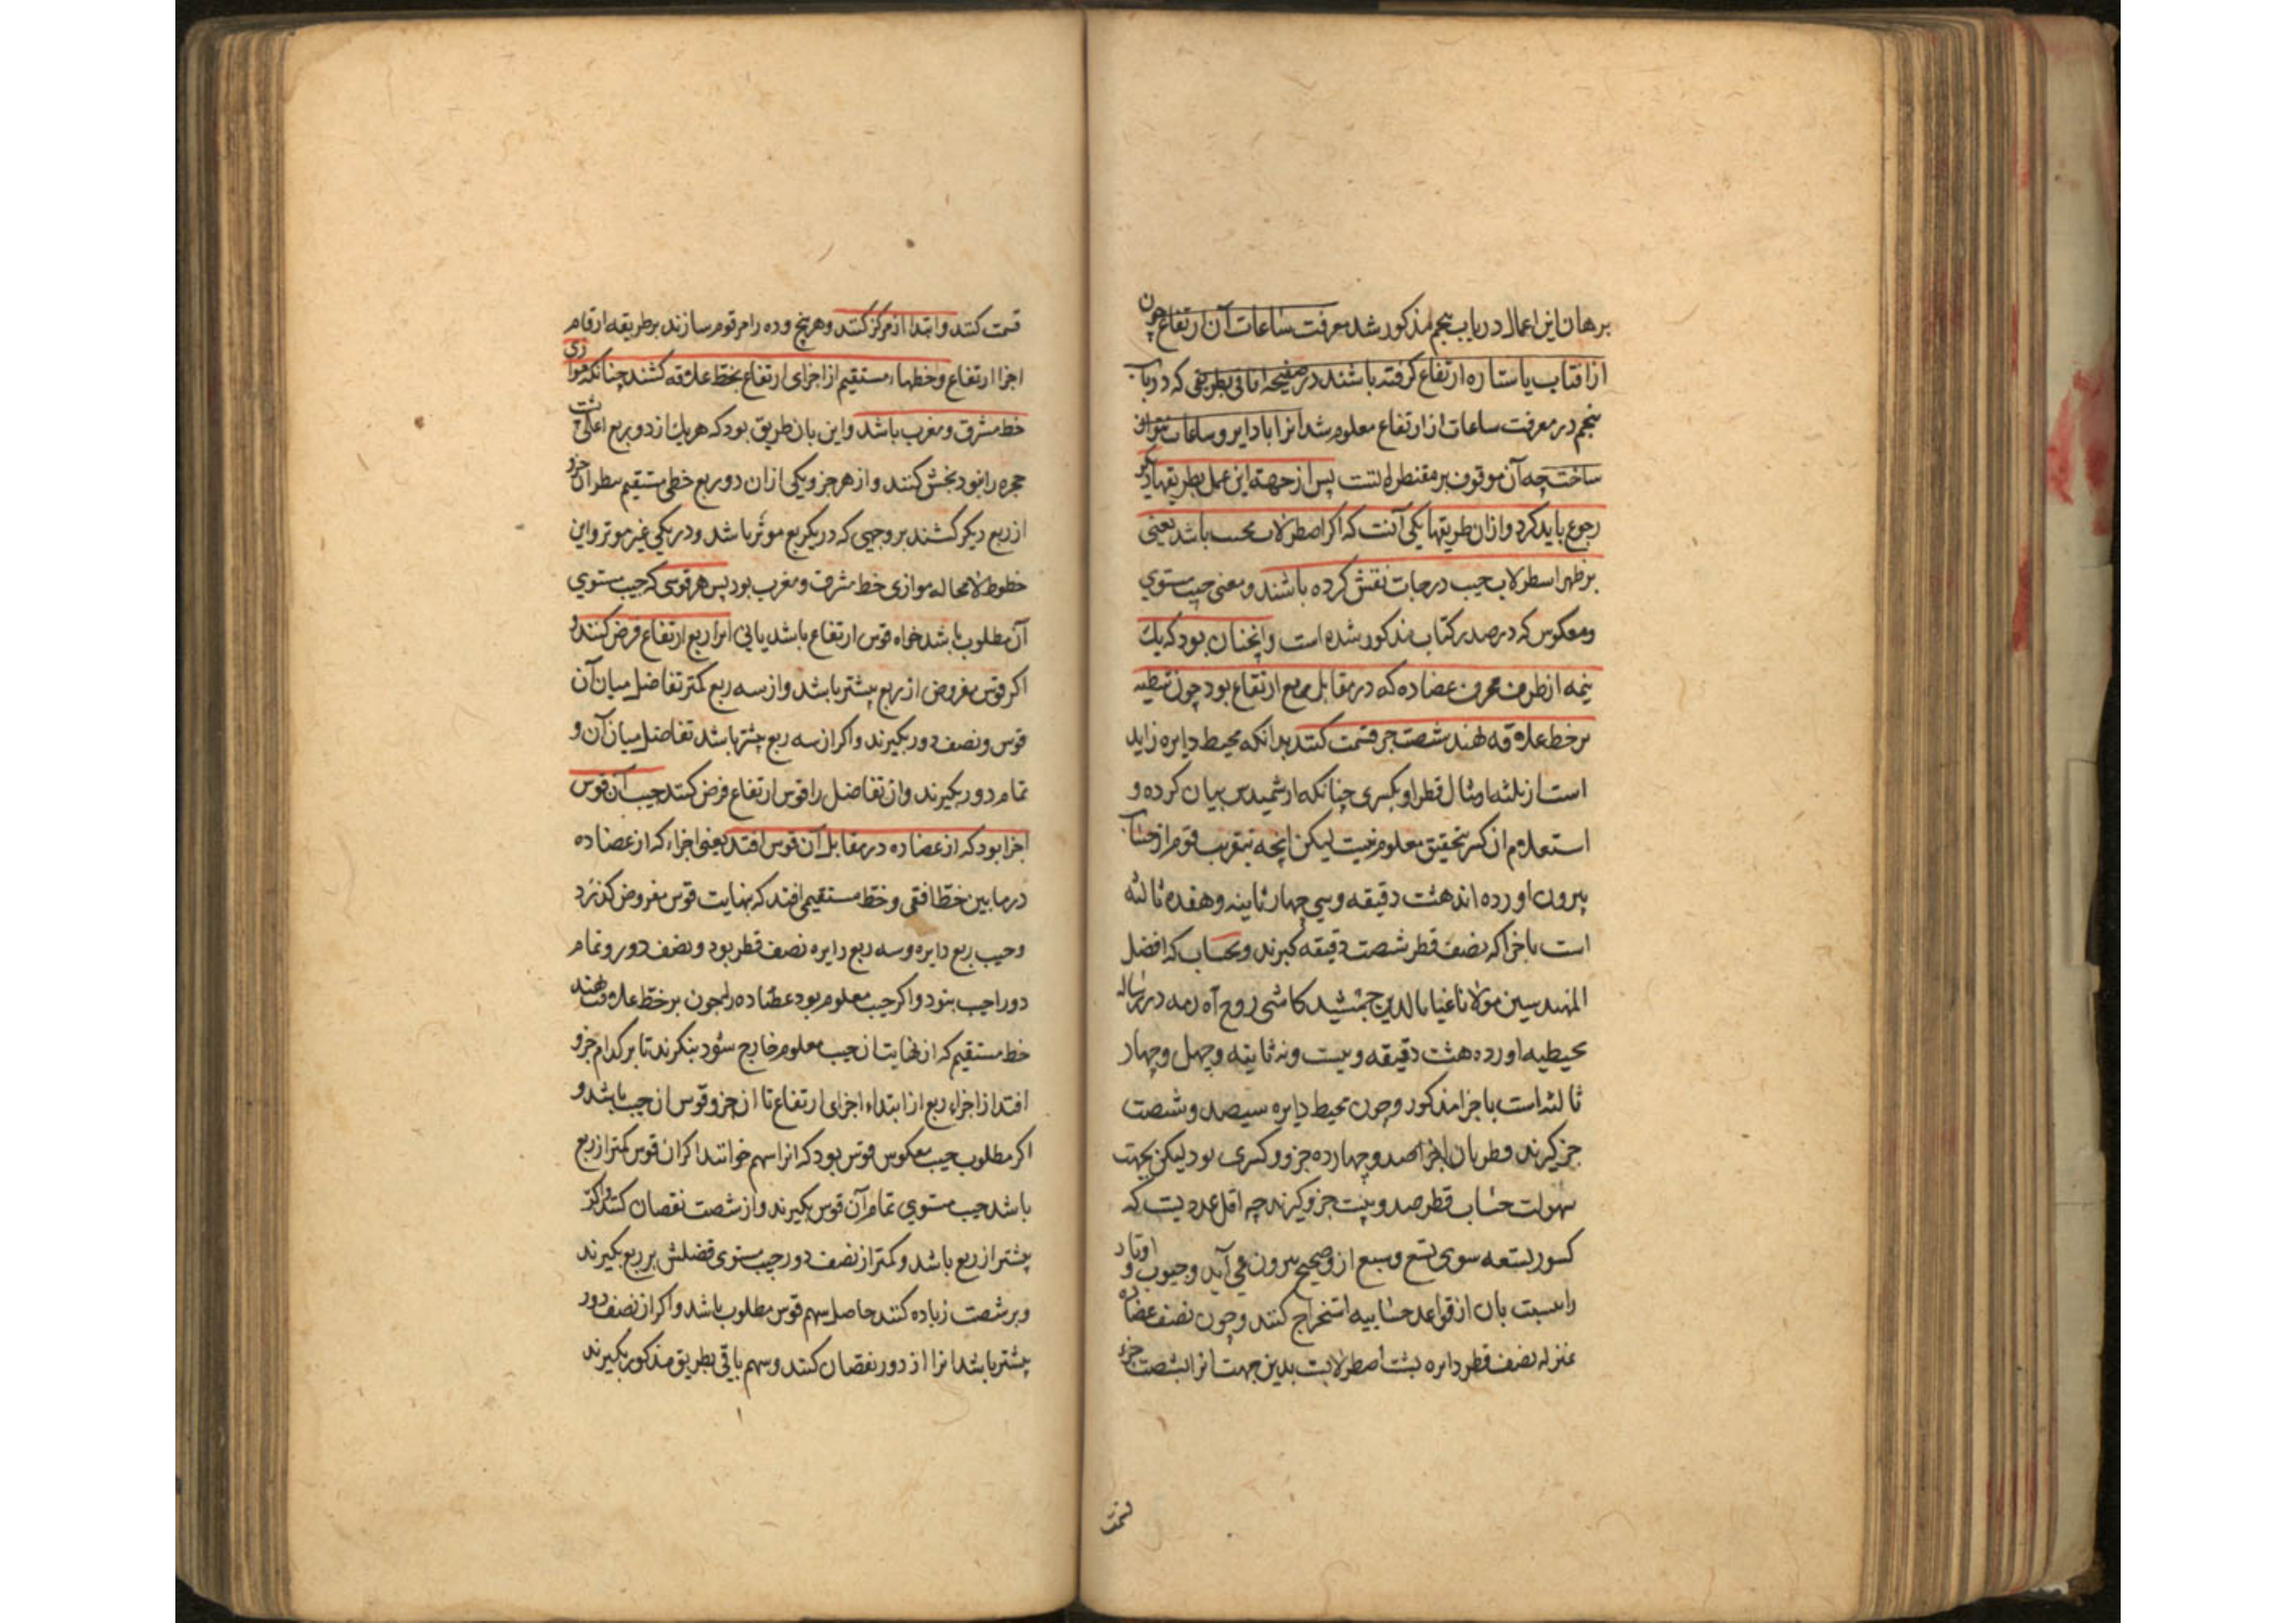 برهان این اعمال در باب پنجم مذکور شد معرفت ساعات آن ارتفاع چون
از افتاب یا ستاره ارتفاع کرفته باشند در صفیحه افاقی بطریقی که در باب
پنجم در معرفت ساعات از ارتفاع معلوم شد انرا با دایر و ساعات نتوان
ساخت چه آن موقوف بر مقنطراتست پس از جهة این عمل بطریقها دیکر
رجوع باید کرد و ازان طریقها یکی آنست که اکر اصطرلاب مجیب باشد یعنی
بر ظهر اسطرلاب جیب درجات نقش کرده باشند و معنی جیب مستوی
و معکوس که در صدر کتاب مذکور شده است و انچنان بود که یک
نیمه از طرف محرف عضاده که در مقابل ربع ارتفاع بود چون شطیه
بر خط علاقه نهند شصت جز قسمت کنند بدانکه محیط دایره زاید
است از ثلثه امثال قطر او بکسری چنانکه ارشمیدس بیان کرده و
استعلام ان کسر بتحقیق معلوم نیست لیکن انچه بتقریب قوم از حساب
بیرون اورده اند هشت دقیقه و سی چهار ثانیه و هفده ثالثه
است باجزا که نصف قطر شصت دقیقه کیرند و بحساب که افضل
المهندسین مولانا غیاث الدین جمشید کاشی روح آه رمه در رساله
محیطیه اورده هشت دقیقه و بیست و نه ثانیه و چهل و چهار
ثالثه است باجزا مذکور و چون محیط دایره سیصد و شصت
جز کیرند قطر بان اجزا صد و چهارده جزو و کسری بود لیکن بجهت
سهولت حساب قطر صد و بیست جزو کیرند چه اقل عددیست که
کسور تسعه سوی تسع و سبع از و صحیح بیرون می آید و جیوب و اوتار
را نسبت بان از قواعد حسابیه استخراج کنند و چون نصف عضاده
بمنزله نصف قطر دایره پشت اصطرلابست بدین جهت انرا بشصت جزء
قسمت
قسمت کنند و ابتدا از مرکز کنند و هر پنج و ده را مرقوم سازند بر طریقه ارقام
اجزا ارتفاع و خطها مستقیم از اجزای ارتفاع بخط علاقه کشند چنانکه موازی
خط مشرق و مغرب باشد و این بان طریق بود که هر یک از دو ربع اعلی پشت
حجره را نبود بخش کنند و از هر جزو یکی ازان دو ربع خطی مستقیم بنظر ان جزو
از ربع دیکر کشند بر وجهی که در یک ربع موثر باشد و در یکی غیر موثر و این
خطوط لا محاله موازی خط مشرق و مغرب بود پس هر قوسی که جیب مستوی
آن مطلوب باشد خواه قوس ارتفاع باشد یا نی انرا ربع ارتفاع فرض کنند و
اکر قوس مفروض از ربع بیشتر باشد و از سه ربع کمتر تفاضل میان آن
قوس و نصف دور بکیرند و اکر از سه ربع بیشتر باشد تفاضل میان آن و
تمام دور بکیرند و ان تفاضل را قوس ارتفاع فرض کنند جیب آن قوس
اجزا بود که از عضاده در مقابل آن قوس افتد یعنی اجزاء که از عضاده
در ما بین خط افقی و خط مستقیمی افتد که بنهایت قوس مفروض کذرد
و جیب ربع دایره و سه ربع دایره نصف قطر بود و نصف دور و تمام
دور را جیب نبود و اکر جیب معلوم بود عضاده را چون بر خط علاقه نهند
خط مستقیم که از نهایت ان جیب معلوم خارج شود بنکرند تا بر کدام جزو
افتد از اجزاء ربع از ابتداء اجزای ارتفاع تا ان جزو قوس ان جیب باشد و
اکر مطلوب جیب معکوس قوس بود که انرا سهم خوانند اکر ان قوس کمتر از ربع
باشد جیب مستوی تمام آن قوس بکیرند و از شصت نقصان کنند و اکر
بیشتر از ربع باشد و کمتر از نصف دور جیب مستوی فضلش بر ربع بکیرند
و بر شصت زیاده کنند حاصل سهم قوس مطلوب باشد و اکر از نصف دور
بیشتر باشد انرا از دور نقصان کنند و سهم باقی بطریق مذکور بکیرند